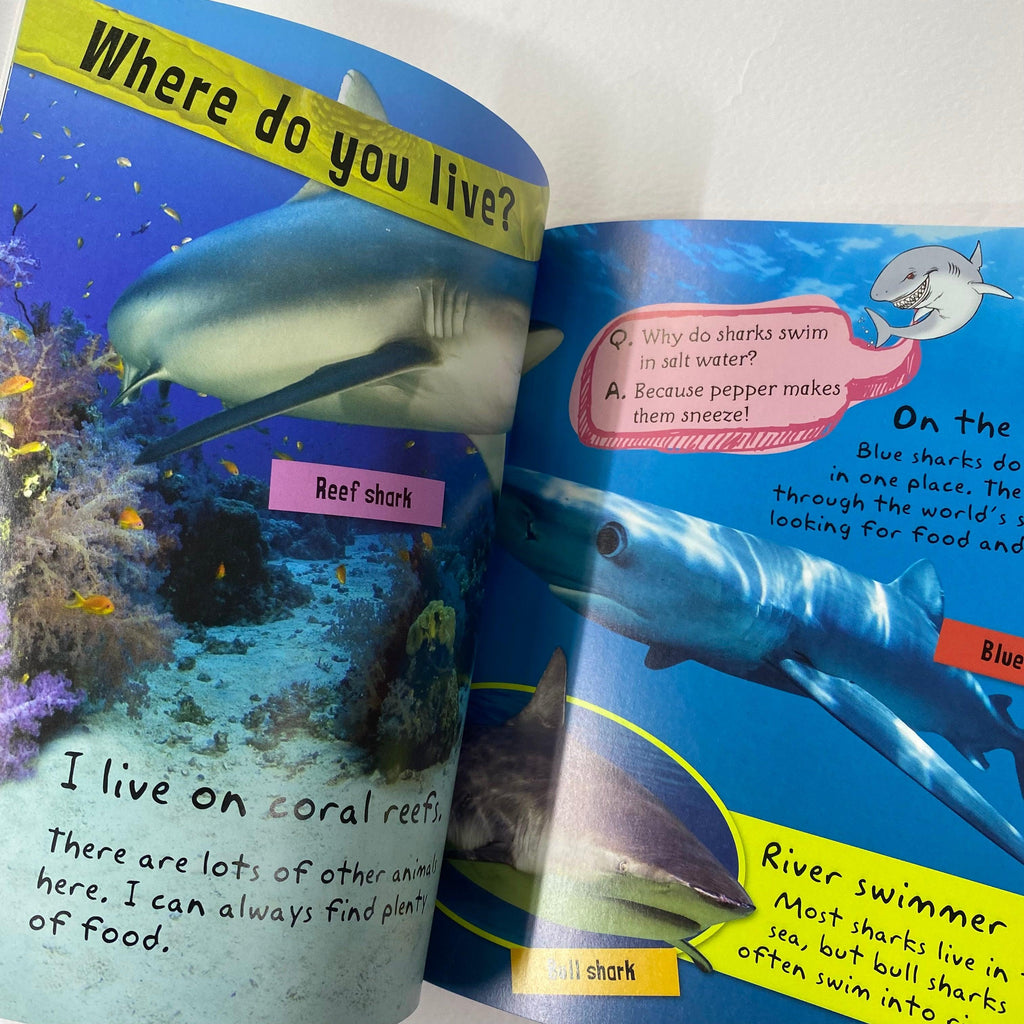 Where do you live?
Reef shark
I live on coral reefs.
There are lots of other animals
here. I can always find plenty
of food.
Q. Why do sharks swim
in salt water?
A. Because pepper makes
them sneeze!
On the
Blue sharks do
in one place. The
through the world's s
looking for food and
Blue
Bull shark
River swimmer
Most sharks live in
sea, but bull sharks
often swim into